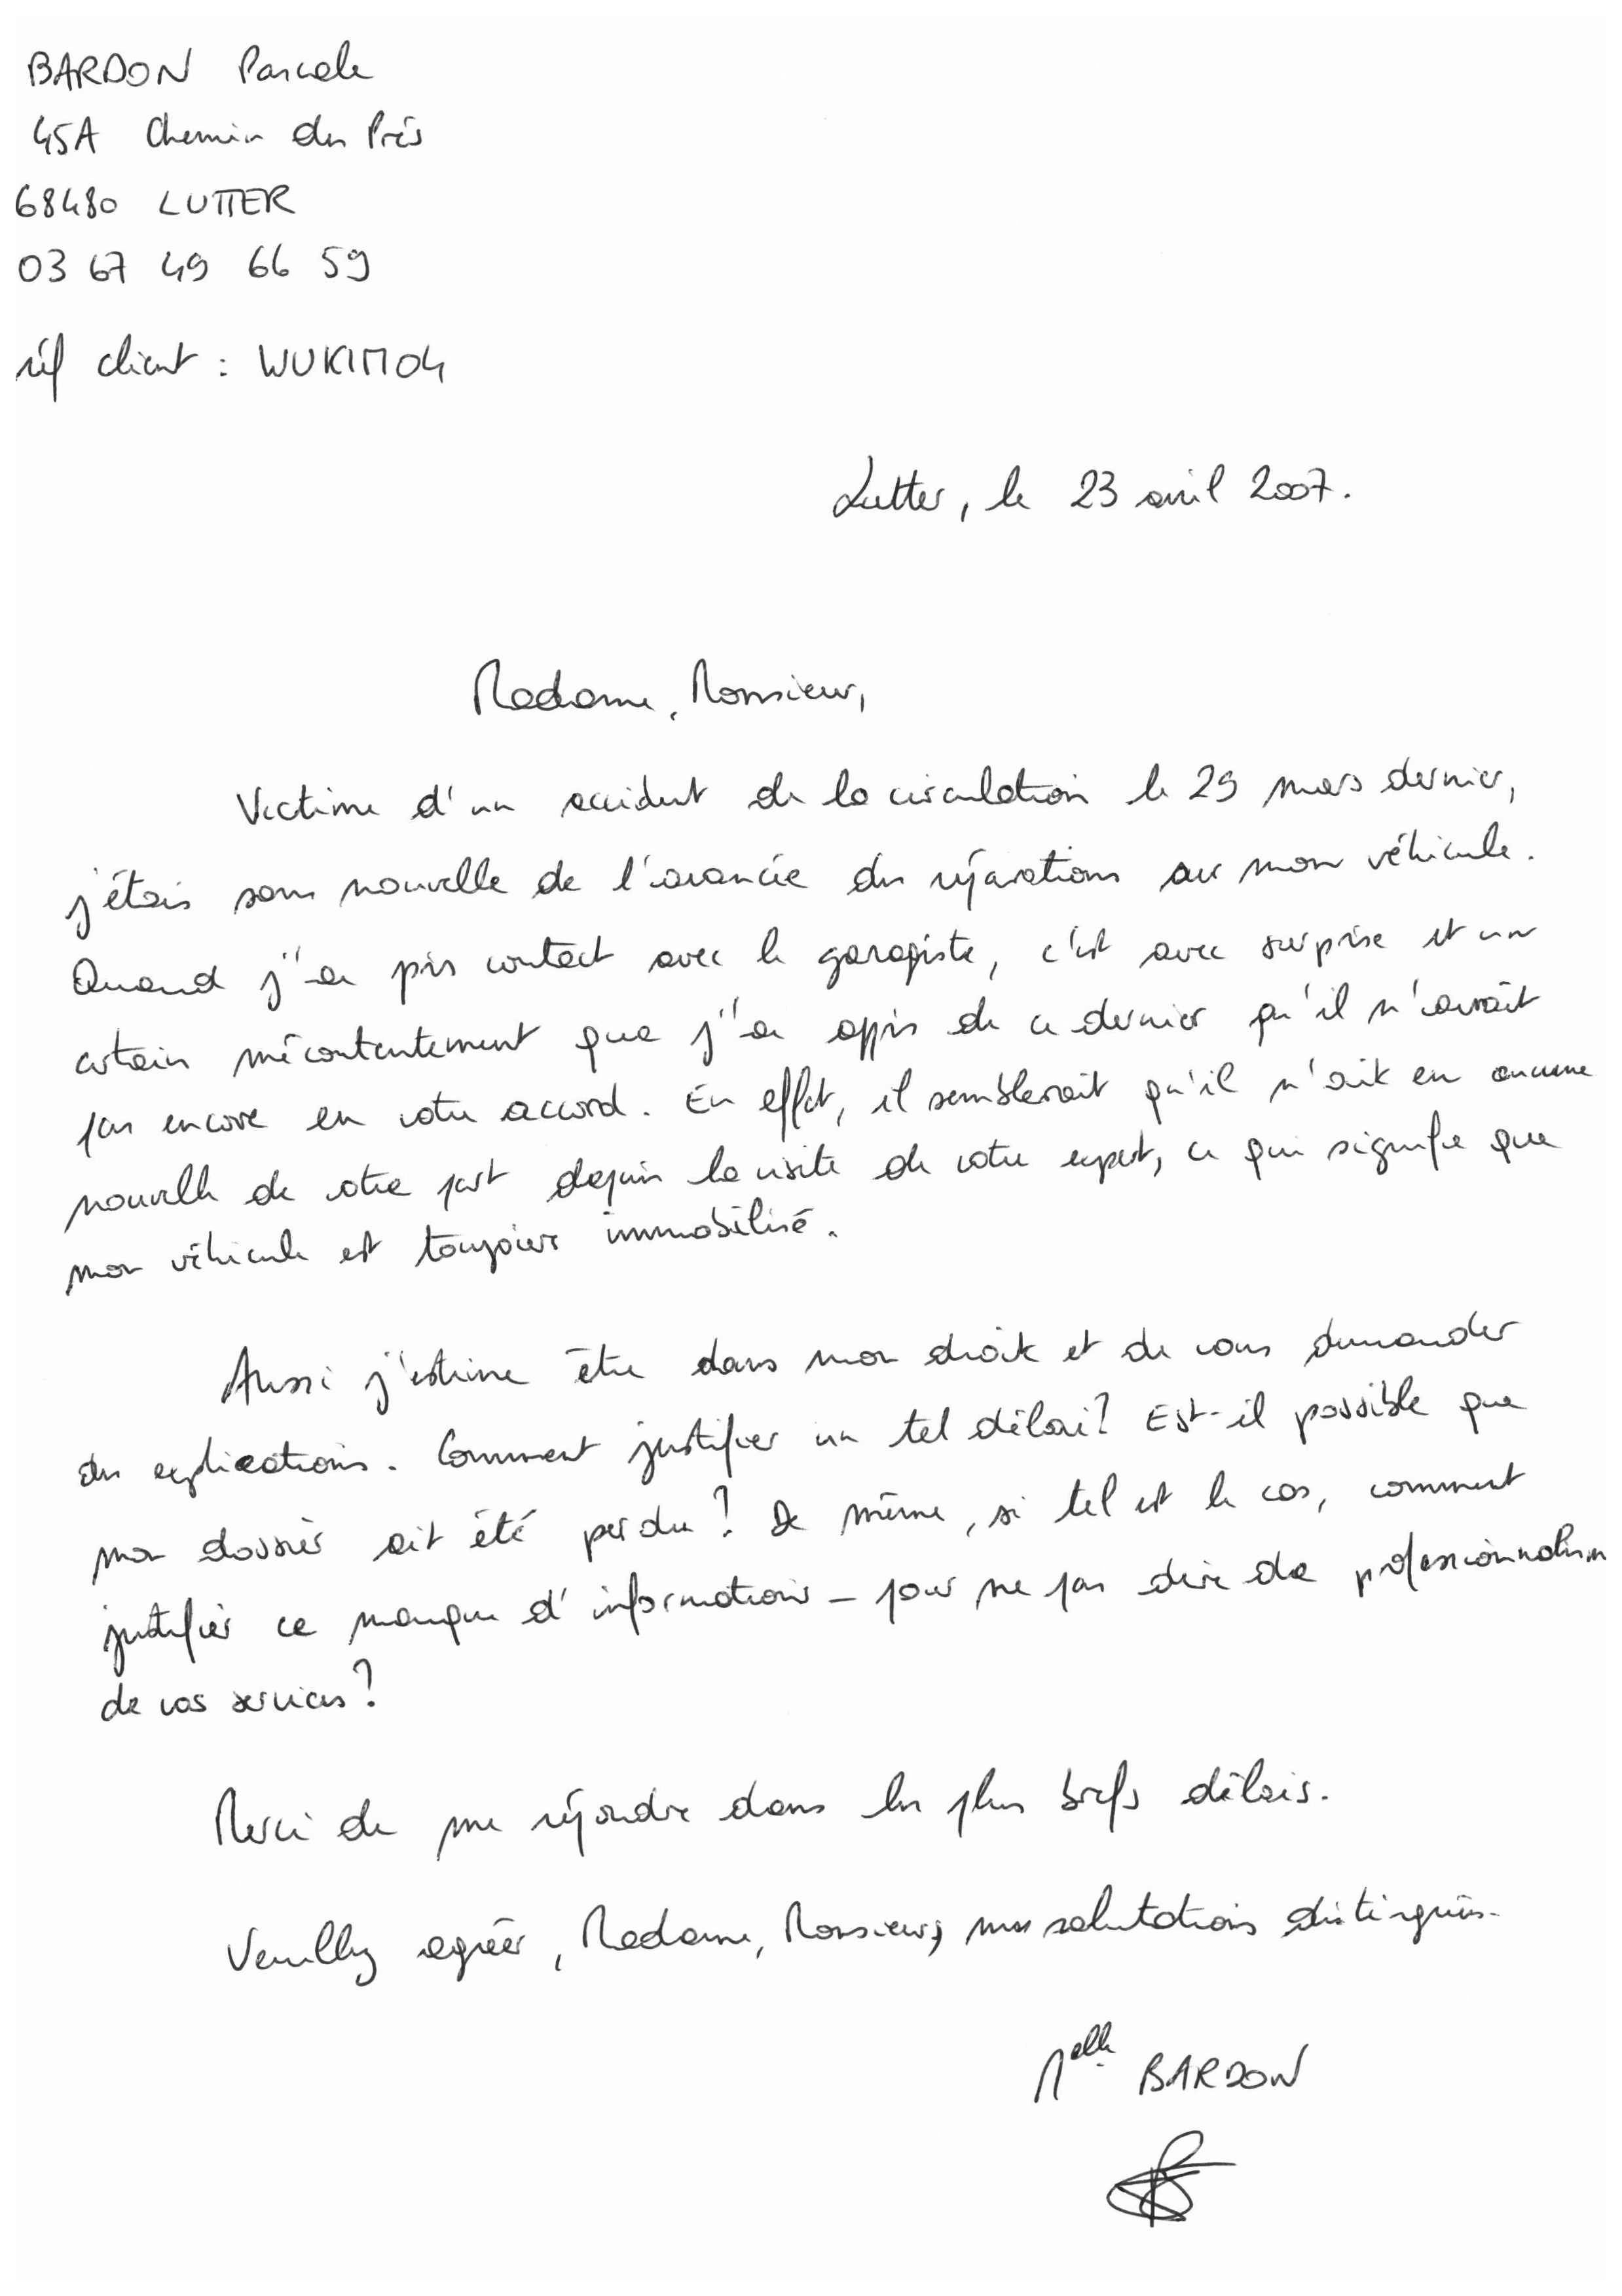 BARDON Pascale
45A Chemin des Prés
68480 LUTTER
03 67 49 66 59
réf client : WUKIM04
Lutter, le 23 avril 2007.
Madame, Monsieur,
Victime d'un accident de la circulation le 29 mars dernier,
j'étais sans nouvelle de l'avancée des réparations sur mon véhicule.
Quand j'ai pris contact avec le garagiste, c'est avec surprise et un
certain mécontentement que j'ai appris de ce dernier qu'il n'avait
pas encore eu votre accord. En effet, il semblerait qu'il n'ait eu aucune
nouvelle de votre part depuis la visite de votre expert, ce qui signifie que
mon véhicule est toujours immobilisé.
Aussi j'estime être dans mon droit et de vous demander
des explications. Comment justifier un tel délai? Est-il possible que
mon dossier ait été perdu? De même, si tel est le cas, comment
justifier ce manque d'informations - pour ne pas dire de professionnalism
de vos services?
Merci de me répondre dans les plus brefs délais.
Veuillez agréer, Madame, Monsieur, mes salutations distinguées.
Melle BARDON